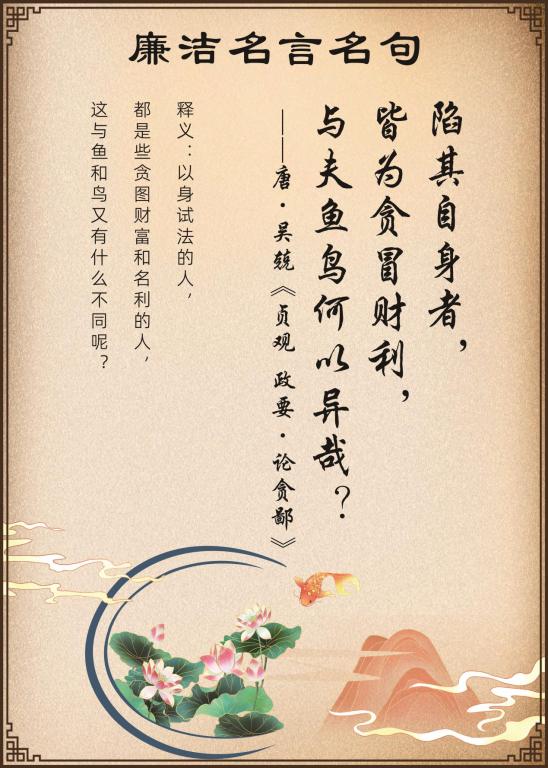 廉洁名言名句
陷其自身者，
皆为贪冒财利，
与夫鱼鸟何以异哉？
——唐·吴兢《贞观 政要·论贪鄙》
释义：以身试法的人，
都是些贪图财富和名利的人，
这与鱼和鸟又有什么不同呢？